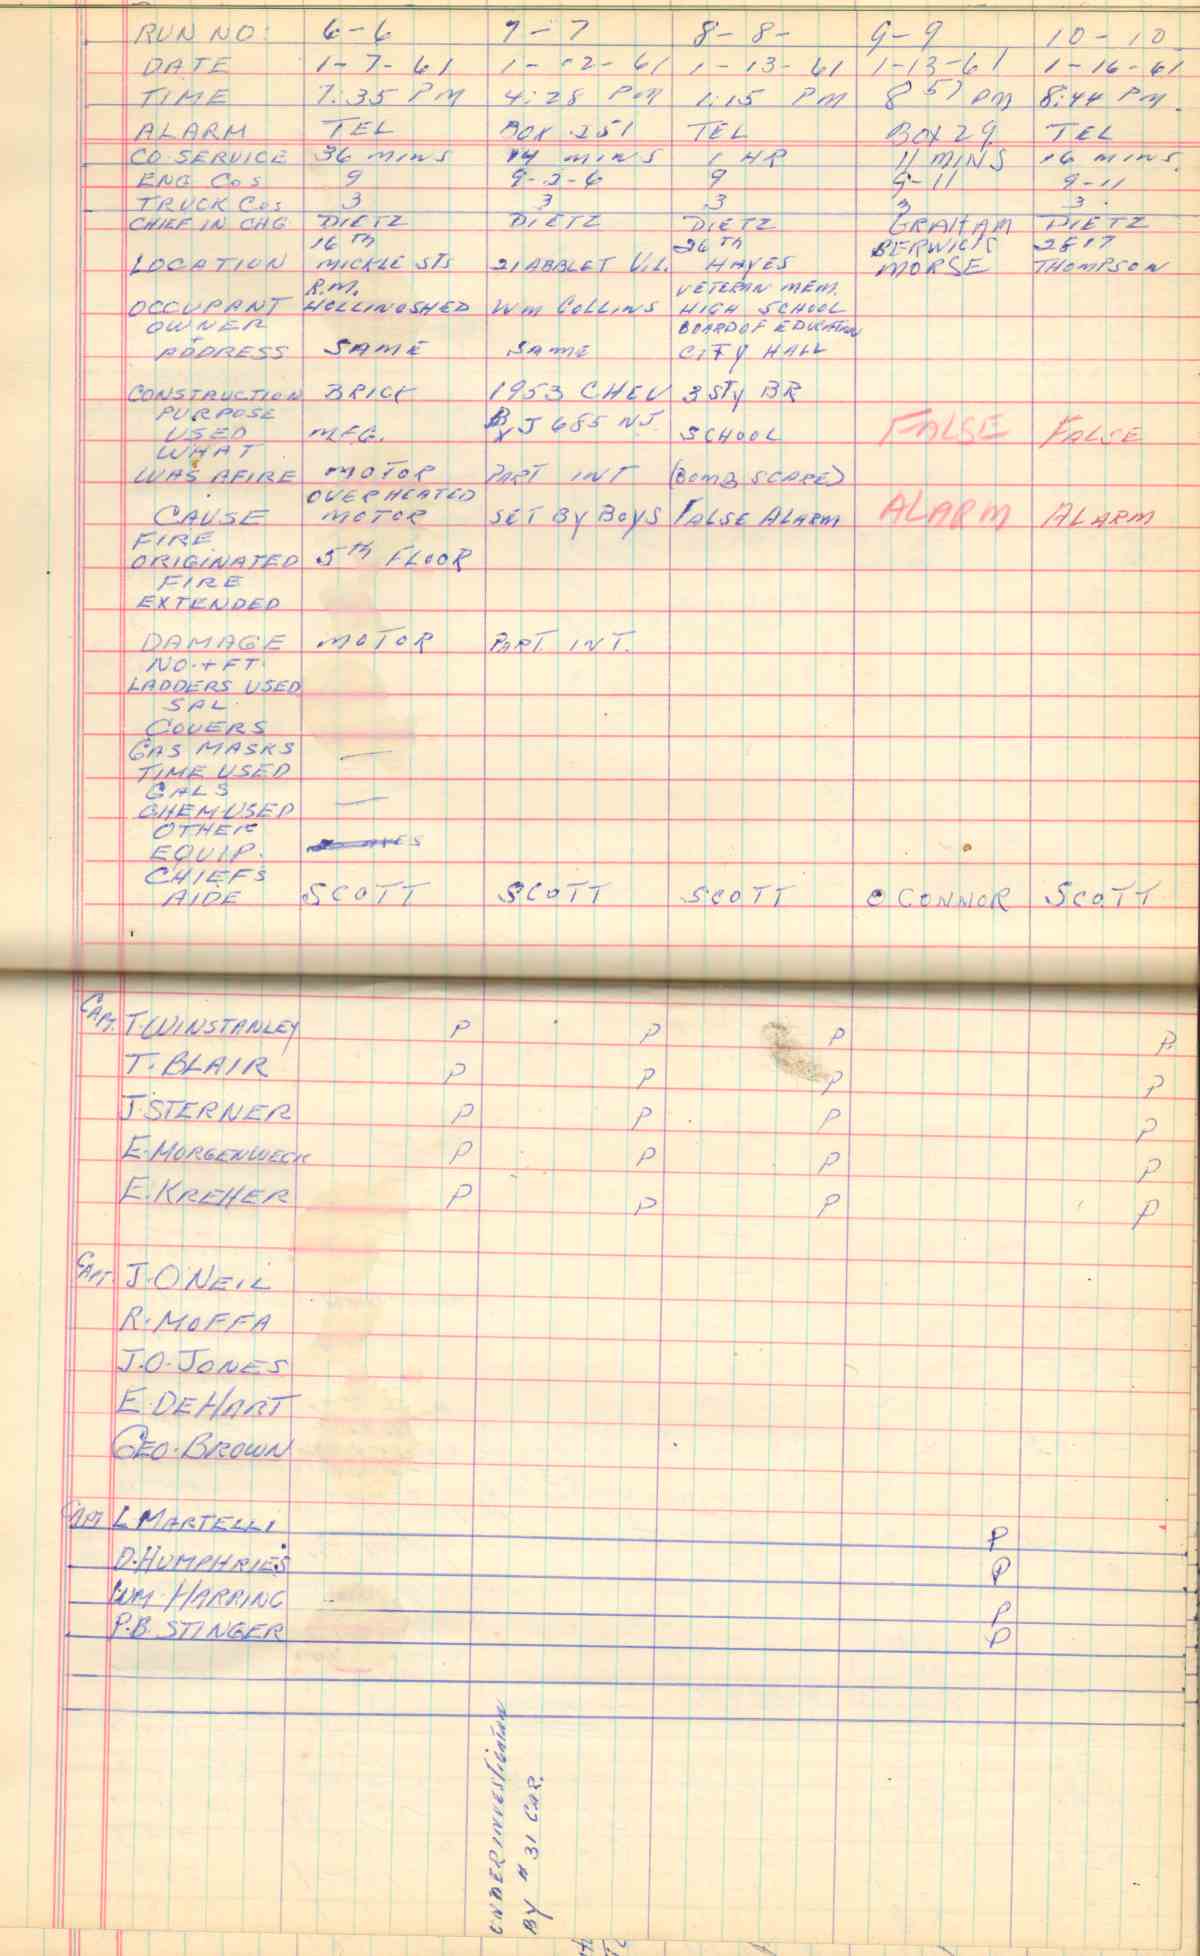 RUN NO: 6-6 7-7 8-8- 9-9 10-10
DATE 1-7-61 1-12-61 1-13-61 1-13-61 1-16-61
TIME 7:35 PM 4:28 PM 1:15 PM 8 57 PM 8:44 PM.
ALARM TEL BOX 251 TEL BOX 29 TEL
CO SERVICE 36 MINS 14 MINS 1 HR 11 MINS 16 MINS.
ENG COS 9 9-2-6 9 9-11 9-11
TRUCK COS 3 3 3 3 3
CHIEF IN CHG DIETZ DIETZ DIETZ GRAHAM DIETZ
16TH 26TH BERWICK 28 17
LOCATION MICKLE STS 21 ABBLET VIL. HAYES MORSE THOMPSON
R.M. VETERAN MEM.
OCCUPANT HOLLINGSHED WM COLLINS HIGH SCHOOL
OWNER BOARD OF EDUCATION
ADDRESS SAME SAME CITY HALL
CONSTRUCTION BRICK 1953 CHEV 3 STY BR
PURPOSE
USED MFG. J 685 NJ. SCHOOL FALSE FALSE
WHAT
WAS AFIRE MOTOR PART INT (BOMB SCARE)
OVERHEATED
CAUSE MOTOR SET BY BOYS FALSE ALARM ALARM ALARM
FIRE
ORIGINATED 5TH FLOOR
FIRE
EXTENDED
DAMAGE MOTOR PART. INT.
NO. + FT.
LADDERS USED
SAL.
COVERS
GAS MASKS —
TIME USED
GALS
CHEM USED —
OTHER
EQUIP.
CHIEFS
AIDE SCOTT SCOTT SCOTT O CONNOR SCOTT
CAPT. T. WINSTANLEY P P P P
T. BLAIR P P P P
J. STERNER P P P P
E. MORGENWECK P P P P
E. KREHER P P P P
CAPT. J. O NEIL
R. MOFFA
J. O. JONES
E. DEHART
GEO. BROWN
CAPT L. MARTELLI P
D. HUMPHRIES P
WM. HARRING P
P.B. STINGER P
UNDER INVESTIGATION
BY # 31 CAR.